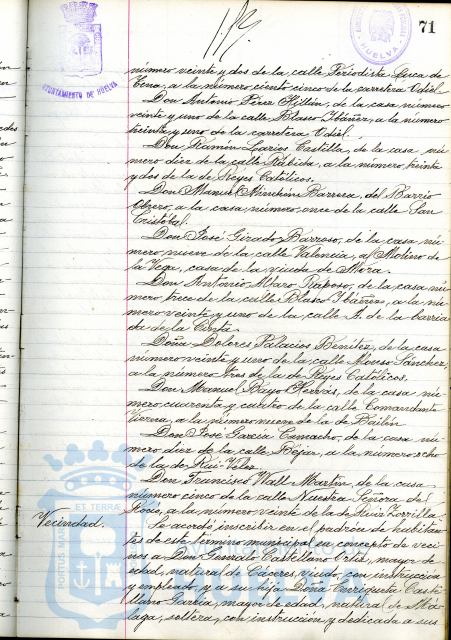 71
AYUNTAMIENTO DE HUELVA
HUELVA
número veinte y dos de la calle Periodista Luca de
Tena, a la número ciento cinco de la carretera Odiel.
Don Antonio Pérez Hillón, de la casa número
veinte y uno de la calle Blasco Ibáñez, a la número
treinta y uno de la carretera Odiel.
Don Ramón Larios Castilla, de la casa nú
mero diez de la calle Rábida, a la número treinta
y dos de la de Reyes Católicos.
Don Manuel Minchón Barrera, del Barrio
Obrero, a la casa número once de la calle San
Cristóbal.
Don José Girado Barroso, de la casa nú
mero nueve de la calle Valencia, al Molino de
la Vega, casa de la viuda de Mora.
Don Antonio Maro Raposo, de la casa nú
mero trece de la calle Blasco Ibáñez, a la nú
mero veinte y uno de la calle A. de la barria
da de la Cinta.
Doña Dolores Palacios Benítez, de la casa
número veinte y uno de la calle Alonso Sánchez,
a la número tres de la de Reyes Católicos.
Don Manuel Rayo Hervás, de la casa nú
mero cuarenta y cuatro de la calle Comandante
Vierna, a la número nueve de la de Bailén
Don José García Camacho, de la casa nú
mero diez de la calle Béjar, a la número ocho
de la de Rui-Vélez.
Don Francisco Wall Martín, de la casa
número cinco de la calle Nuestra Señora del
Rocío, a la número veinte de la de Ruiz Zorrilla
Vecindad. Se acordó inscribir en el padrón de habitan
tes de este término municipal en concepto de veci
nos a Don Gerardo Castellano Ortiz, mayor de
edad, natural de Cáceres, viudo, con instrucción
y empleado, y a su hija Doña Enriqueta Caste
llano García, mayor de edad, natural de Má
laga, soltera, con instrucción y dedicada a sus
ET TERRÆ
PORTUS MARIS